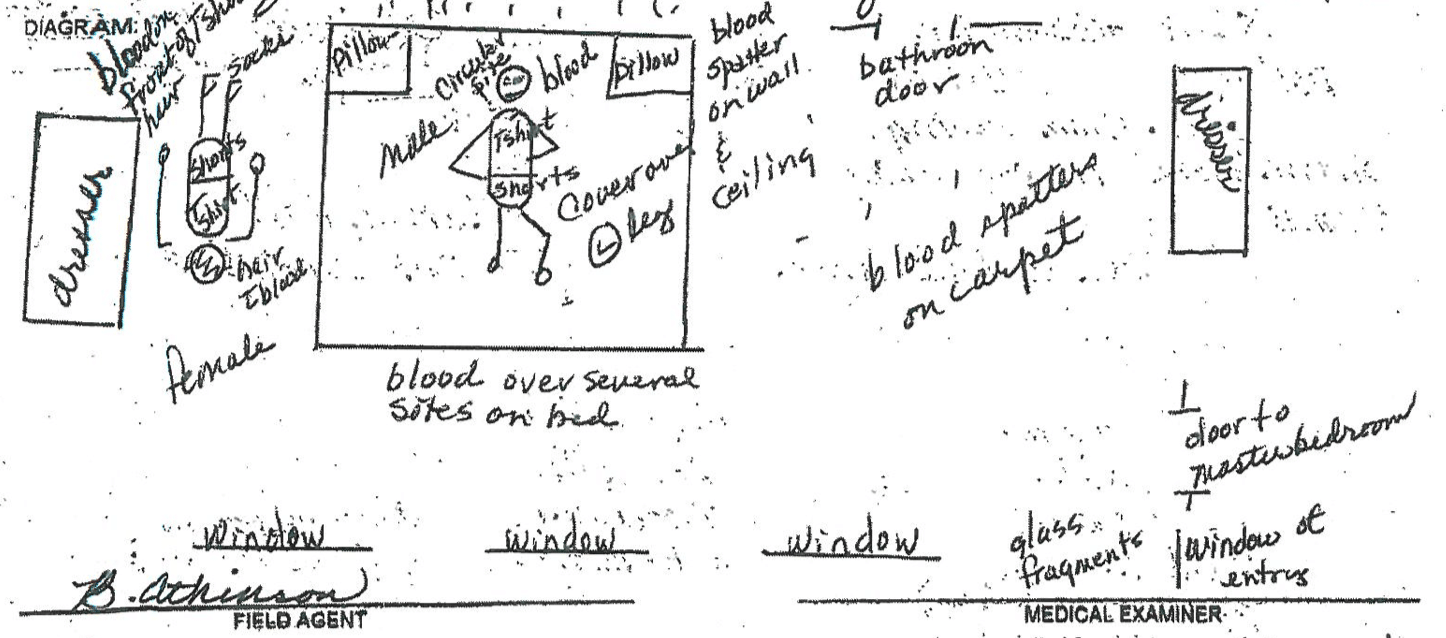 DIAGRAM:
blood on
front of Tshirt
hair
socks
shorts
Tshirt
hair
blood
female
dresser
pillow
circular
male
blood
pillow
Tshirt
shorts
cover over
L leg
blood over several
sites on bed
blood
spatter
on wall
&
ceiling
bathroom
door
blood spatters
on carpet
dresser
door to
master bedroom
window
window
window
glass
fragments
window of
entry
B. Atkinson
FIELD AGENT
MEDICAL EXAMINER